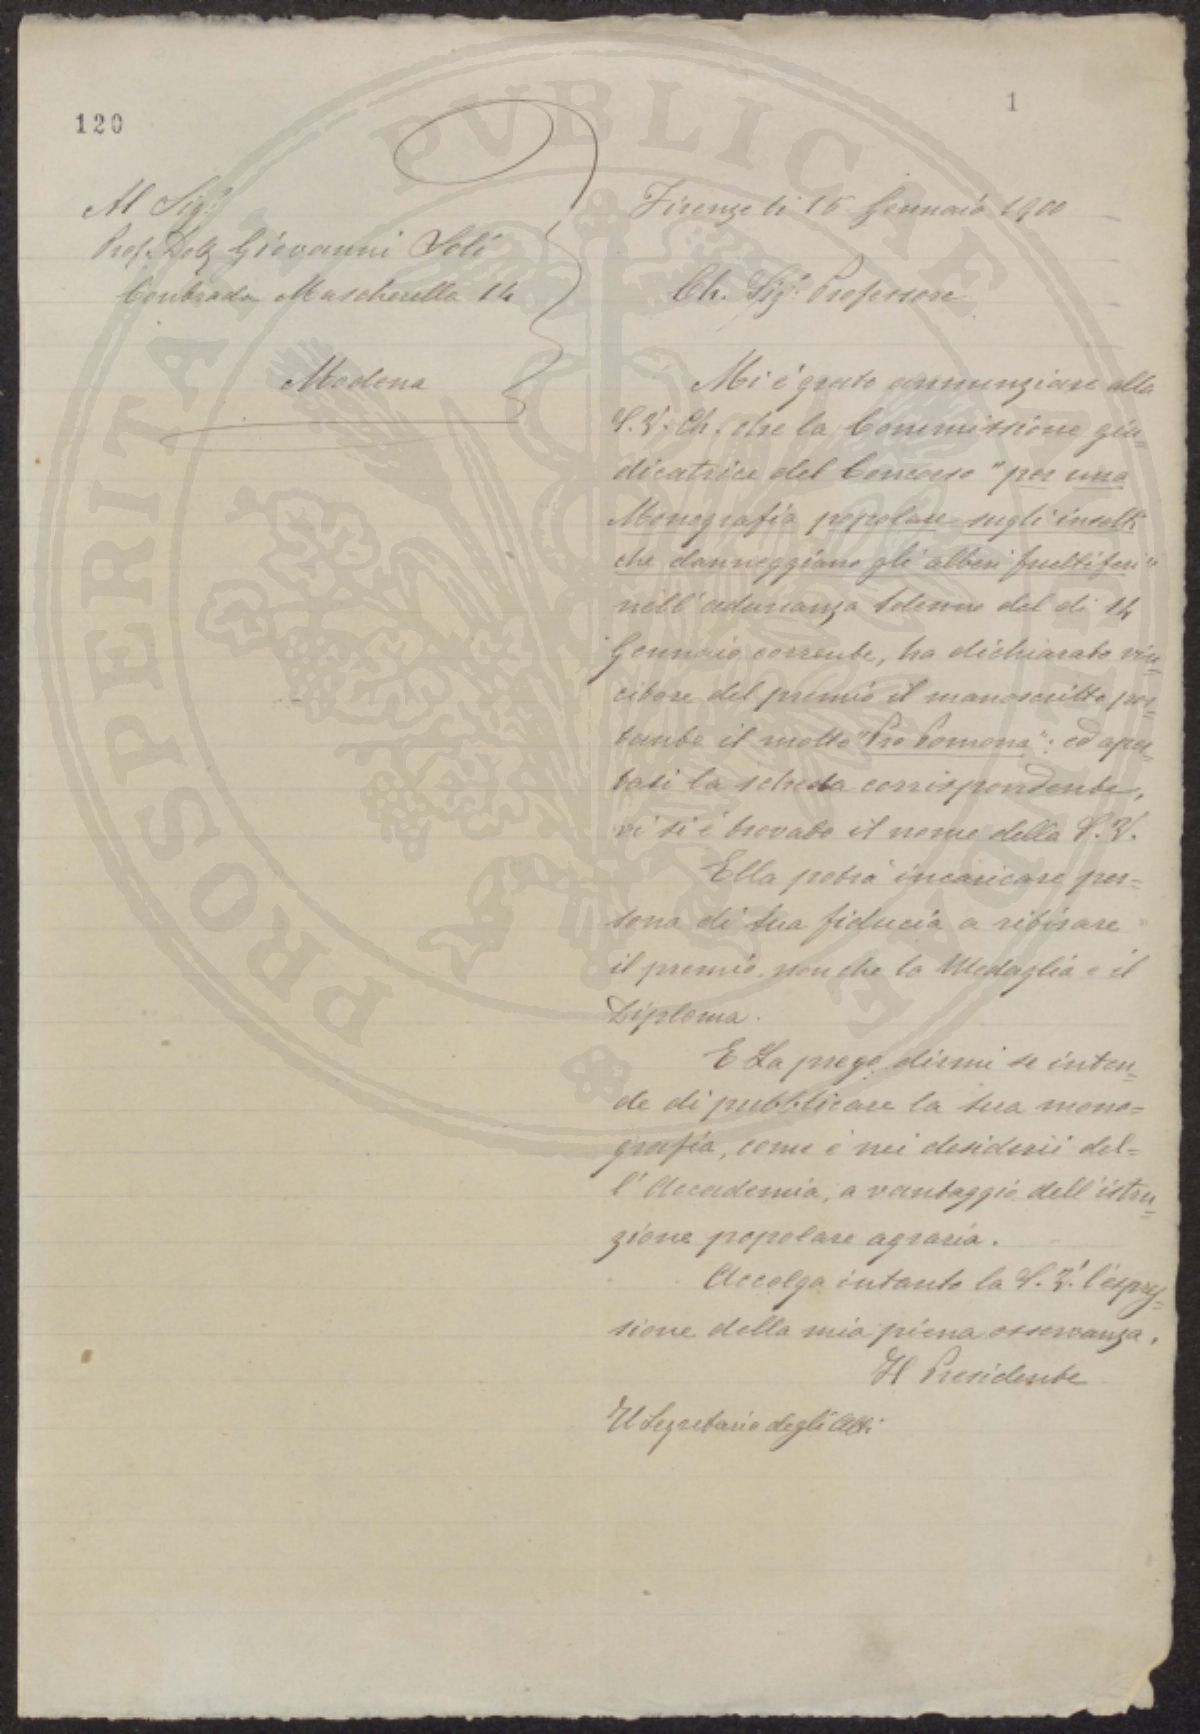 120
1
Al Sigr.
Prof. Dott Giovanni Soli
Contrada Mascherella 14
Modena
Firenze li 15 Gennaio 1900
Ch. Sigr. Professore
Mi è grato annunziare alla
S. V. Ch. che la Commissione giu=
dicatrice del Concorso "per una
Monografia popolare sugli insetti
che danneggiano gli alberi fruttiferi"
nell'adunanza solenne del dì 14
Gennaio corrente, ha dichiarato vin=
citore del premio il manoscritto por=
tante il motto "Pro Pomona": ed aper=
tasi la scheda corrispondente,
vi si è trovato il nome della S. V.
Ella potrà incaricare per=
sona di sua fiducia a ritirare
il premio non che la Medaglia e il
Diploma.
E La prego dirmi se inten=
de di pubblicare la sua mono=
grafia, come è nei desiderii del=
l'Accademia, a vantaggio dell'istru=
zione popolare agraria.
Accolga intanto la S. V. l'espres=
sione della mia piena osservanza.
Il Presidente
Il Segretario degli Atti
PROSPERITATI PUBLICAE AUGENDAE